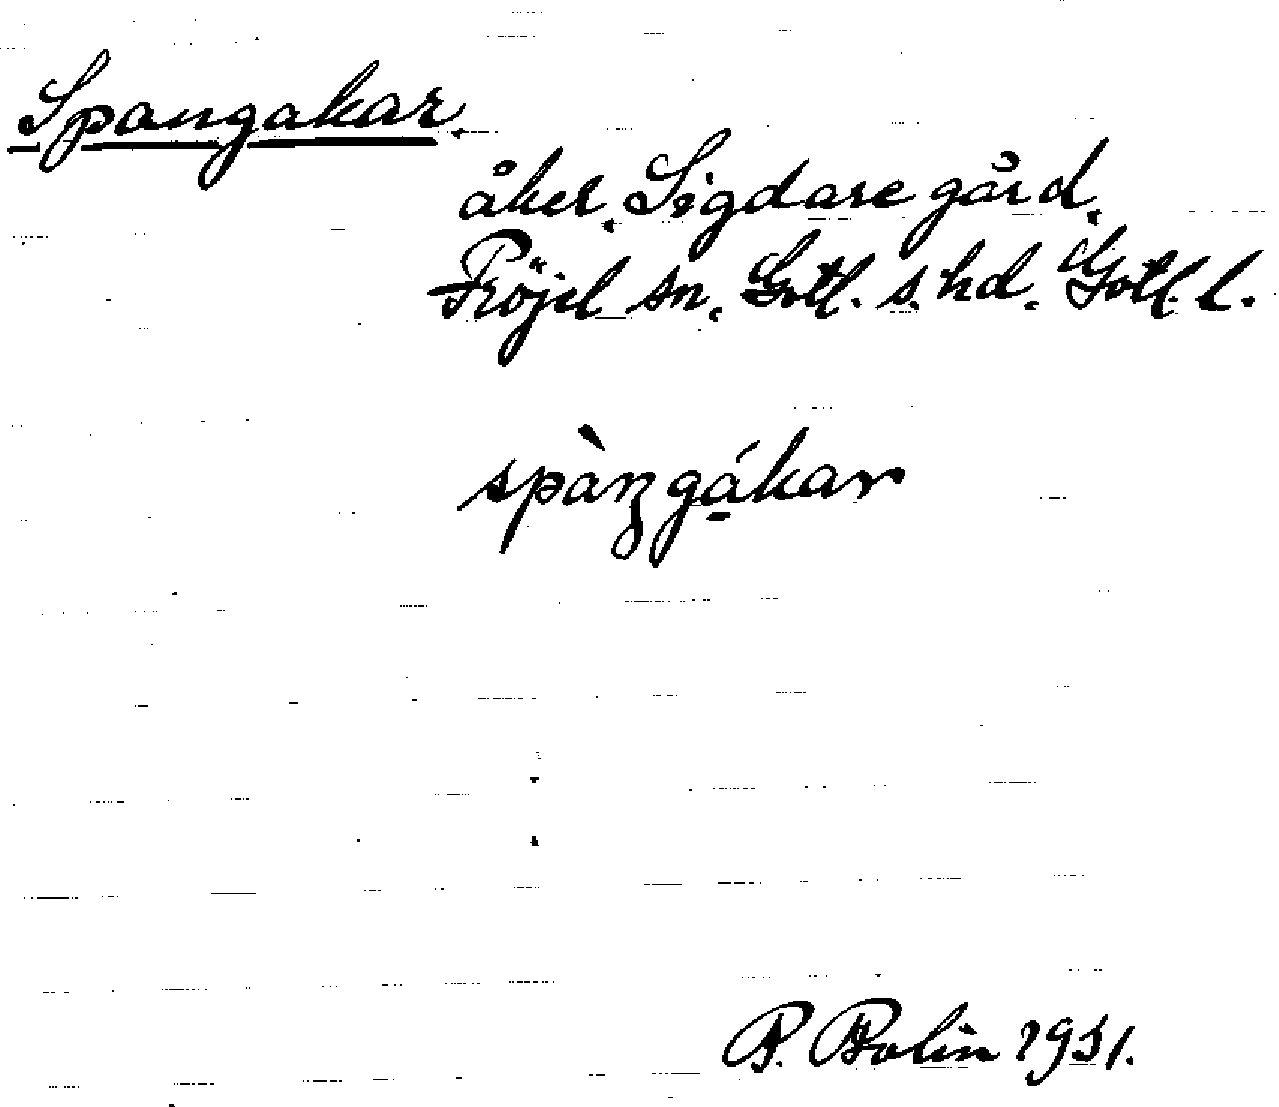 Spangakar.
åker. Sigdare gård.
Fröjel sn. Gotl. s. hd. Gotl. l.
spàŋgá̱kar
B. Bolin 1931.